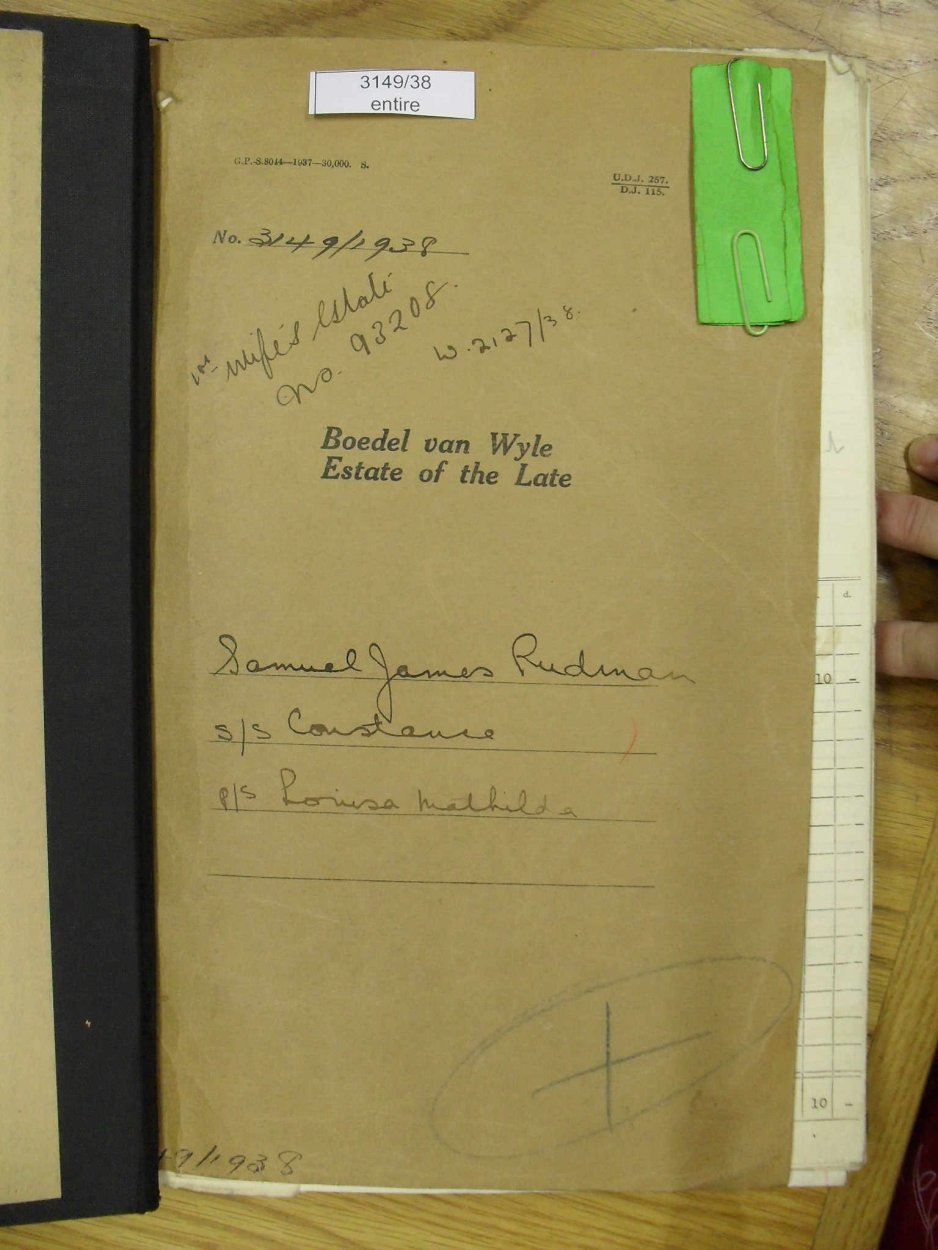 3149/38
entire
G.P.-S.8044—1937—30,000. S.
U.D.J. 257.
D.J. 115.
No. 3149/1938
1st wife's Estate
No. 93208.
W. 2127/38.
Boedel van Wyle
Estate of the Late
Samuel James Rudman
s/s Constance
p/s Louisa Mathilda
d.
10 -
10 -
49/1938